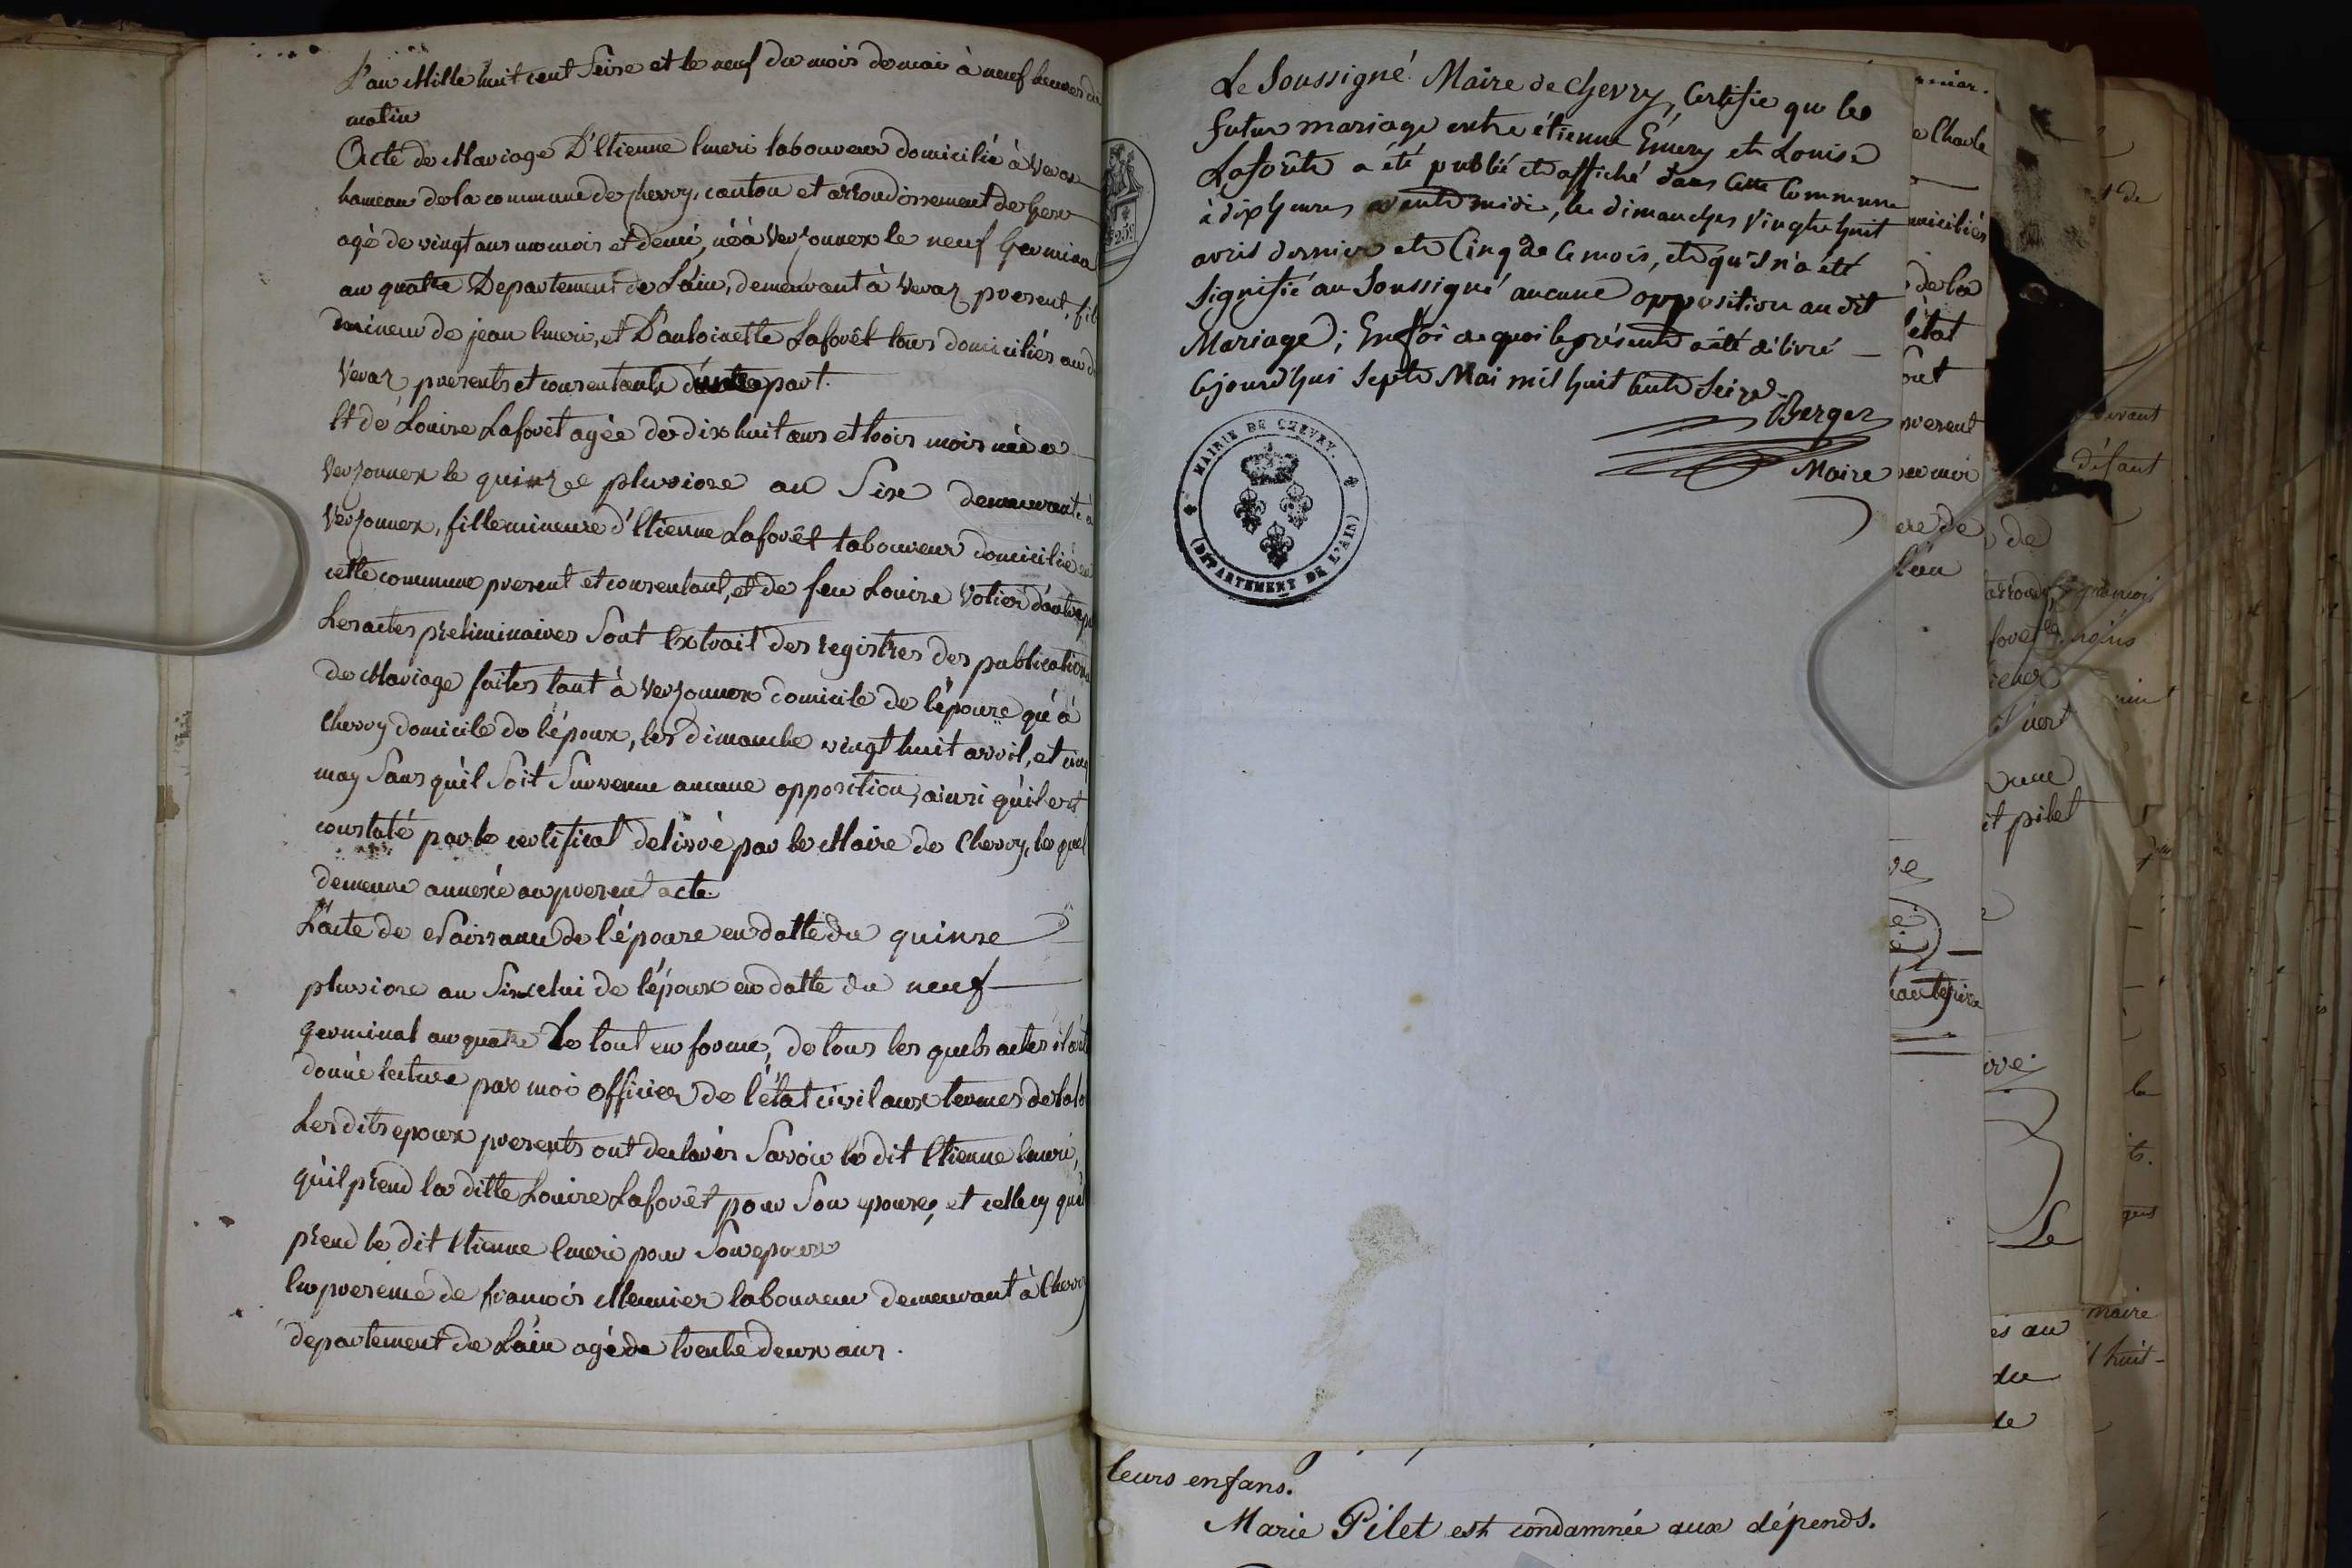 L'an Mille huit cent Seise et le neuf du mois de mai à neuf heures du
matin
Acte de Mariage D'Etienne Emeri laboureur domicilié à Veraz
hameau de la commune de chevry, canton et arrondissement de Gex
agé de vingt ans un mois et demi, né à Versonnex le neuf Germinal
an quatre Departement de L'ain, demeurant à Veraz present, fils
mineur de jean Emeri, et D'antoinette Laforêt tous domiciliés au d
Veraz presents et consentants d'une part.
Et de Louise Laforêt agée de dix huit ans et trois mois née a
Versonnex le quinze pluviose an Six demeurante à
Versonnex, fille mineure d'Etienne Laforêt laboureur domicilié en
cette commune present et consentant, et de feu Louise Votier d'autre part
Les actes preliminaires Sont Extrait des registres des publications
de Mariage faites tant à Versonnex domicile de l'épouse qu'à
Chevry domicile de l'époux, les dimanche vingt huit avril, et cinq
may Sans qu'il Soit Survenue aucune opposition, ainsi qu'il est
constaté par le certificat delivré par le Maire de Chevry, le quel
demeure annexé au present acte.
L'acte de Naissance de l'épouse en datte du quinse
pluviose an Six celui de l'époux en datte du neuf
germinal an quatre Le tout en forme, de tous les quels actes il a été
donné lecture par moi officier de l'état civil aux termes de la loi
Les dits epoux presents ont declarés Savoir le dit Etienne Emeri,
qu'il prend la ditte Louise Laforêt pour Son epouse, et celle cy qu'el
prend le dit Etienne Emeri pour Son epoux
En presence de françois Meunier laboureur demeurant à Chevry
departement de L'ain agé de trente deux ans.
Le Soussigné Maire de Chevry, Certifie que le
futur mariage entre étienne Émery et Louise
Laforêt a été publié et affiché dans Cette Commune
à dix heures avant midi, les dimanches Vingt huit
avril dernier et Cinq de ce mois, et qu'il n'a été
Signifié au Soussigné aucune opposition au dit
Mariage; En foi de quoi le présent a été délivré
Cejourd'hui Sept Mai mil huit Cent Seize.
Berger
Maire
MAIRIE DE CHEVRY.
(DÉPARTEMENT DE L'AIN)
e Charle
miciliés
de la
l'état
ont
present
ere de
l'an
it pilet
Le
maire
es au
du
de
leurs enfans.
Marie Pilet est condamnée aux dépends.